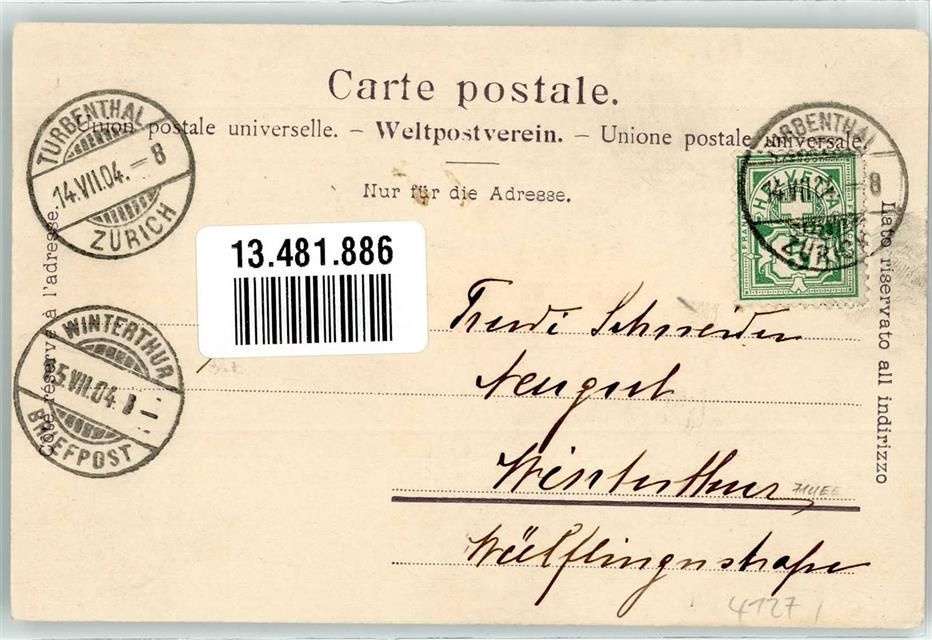 Carte postale.
Union postale universelle. – Weltpostverein. – Unione postale universale.
Nur für die Adresse.
Côté réservé à l'adresse.
Lato riservato all indirizzo
TURBENTHAL
14.VII.04. – 8
ZÜRICH
TURBENTHAL
14.VII.04. – 8
ZÜRICH
HELVETIA
FRANCO
5
13.481.886
WINTERTHUR
15.VII.04. 8 –
BRIEFPOST
Trudi Schneider
Neugut
Winterthur
Wülflingerstraße
4127